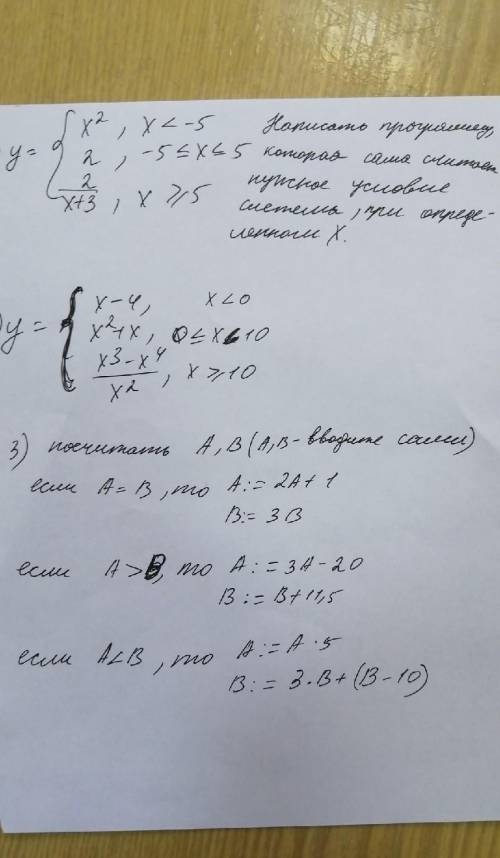 y = { x², x < -5
2, -5 ≤ x ≤ 5
2/(x+3), x ⩾ 5
Написать программу,
которая сама считает
нужное условие
системы, при опреде-
ленном X.
) y = { x-4, x < 0
x²+x, 0 ≤ x < 10
(x³-x⁴)/x², x ⩾ 10
3) посчитать A, B (A, B - вводите сами)
если A = B, то A := 2A + 1
B := 3B
если A > B, то A := 3A - 20
B := B + 11,5
если A < B, то A := A · 5
B := 3·B + (B - 10)